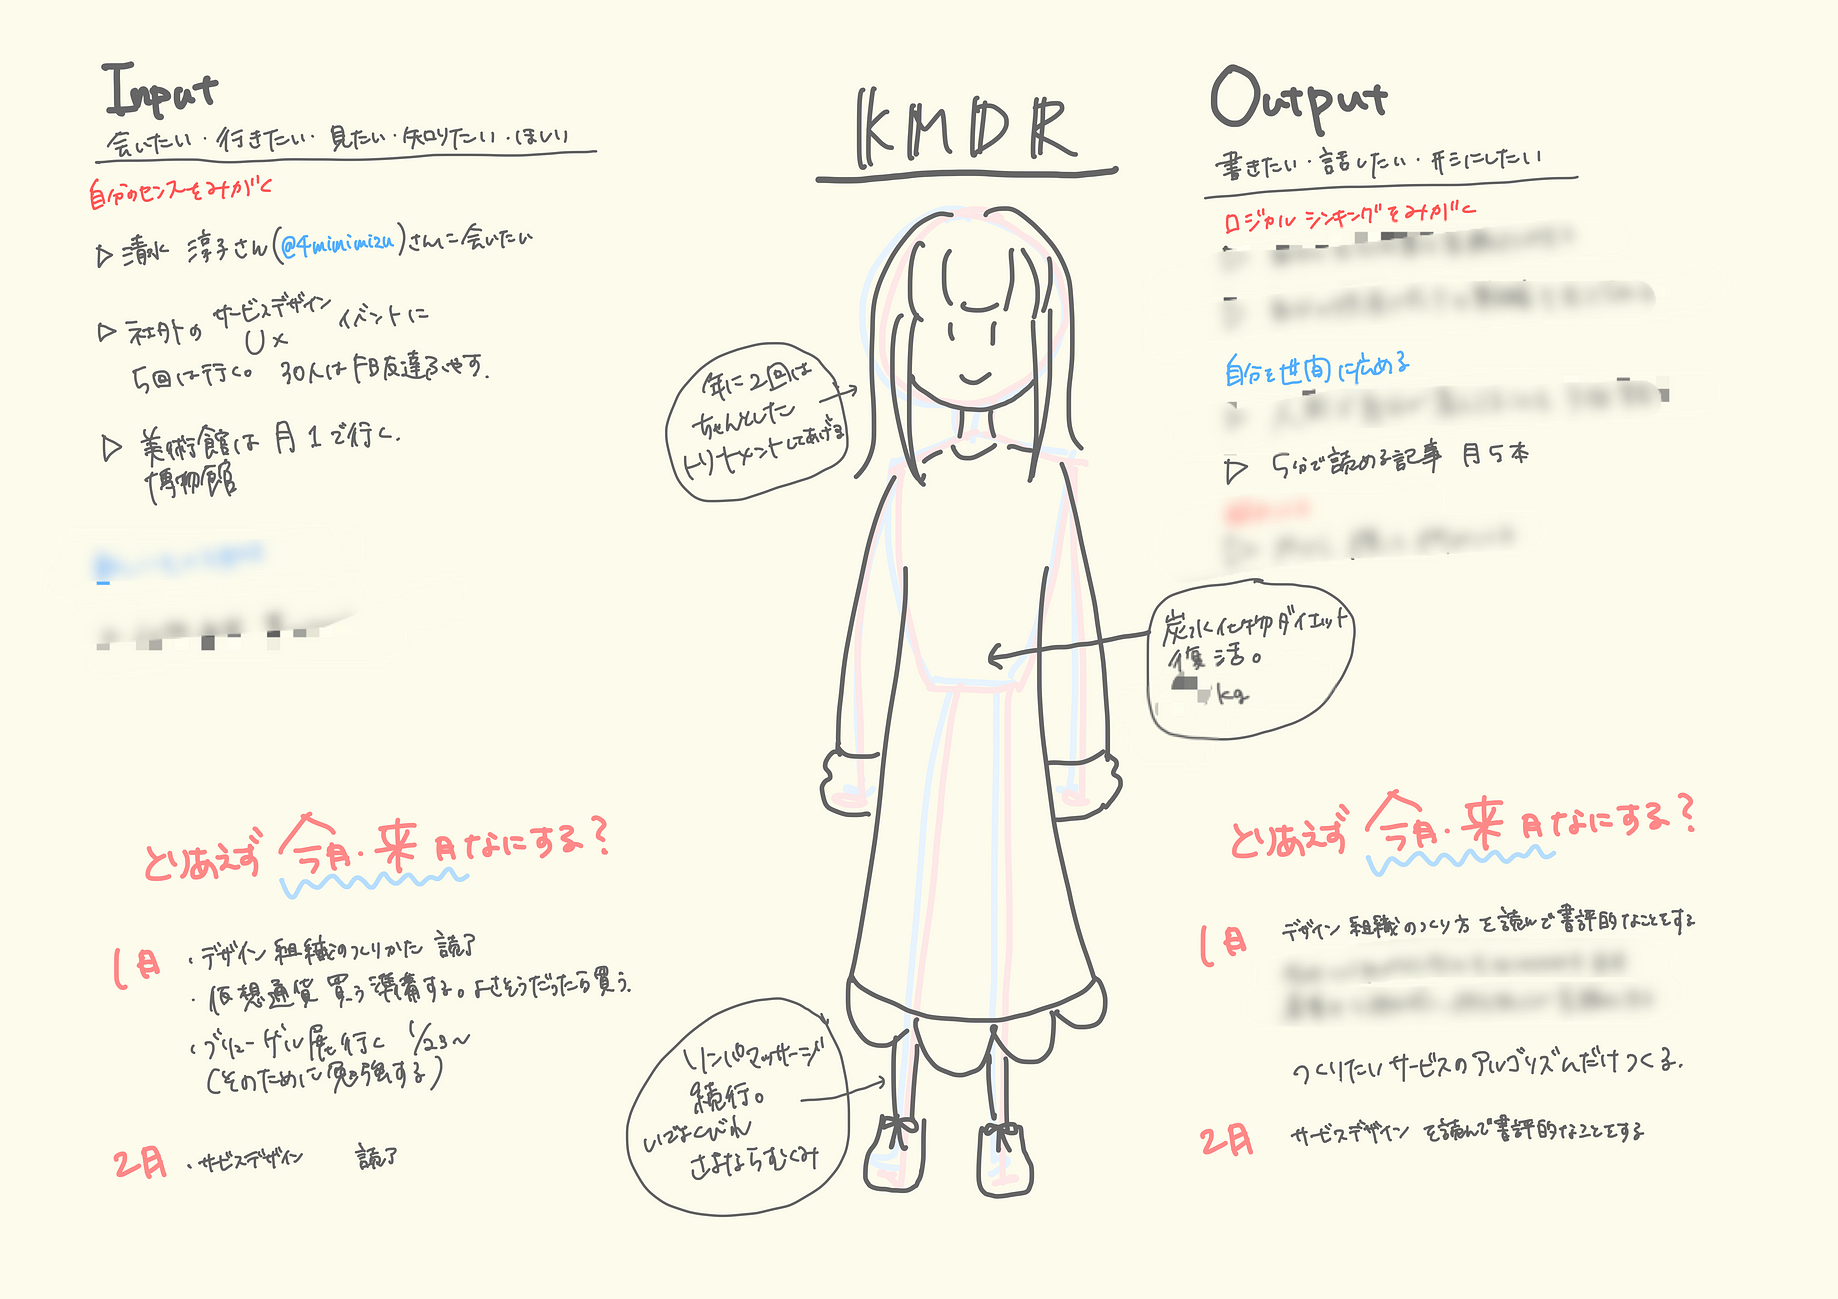 Input
会いたい・行きたい・見たい・知りたい・ほしい
自分のセンスをみがく
▷ 清水 淳子さん(@4mimimizu)さんに会いたい
▷ 社外の サービスデザイン イベントに
UX
5回は行く。 30人はFB友達ふやす.
▷ 美術館は 月1で行く.
博物館
とりあえず 今月・来月なにする?
1月
・デザイン組織のつくりかた 読了
・仮想通貨 買う準備する。よさそうだったら買う.
・ブリューゲル展行く 1/23〜
(そのために勉強する)
2月
・サービスデザイン 読了
KMDR
年に2回は
ちゃんとした
トリートメントしてあげる
炭水化物ダイエット
復活。
kg
リンパマッサージ
続行。
いでよくびれ
さよならむくみ
Output
書きたい・話したい・形にしたい
ロジカルシンキングをみがく
自分を世間に広める
▷ 5分で読める記事 月5本
とりあえず 今月・来月なにする?
1月
デザイン組織のつくり方を読んで書評的なことをする
つくりたいサービスのアルゴリズムだけつくる.
2月
サービスデザインを読んで書評的なことをする